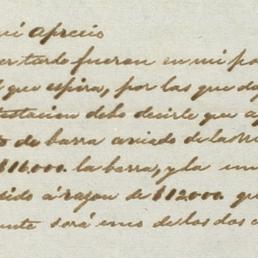 mi aprecio
tarde fueron en mi po
que espira, por las que do
testacion debo decirle que a
de barra aviada de la
$16000. la barra, y la
dido á razon de $12000. qu
nte será uno de los dos